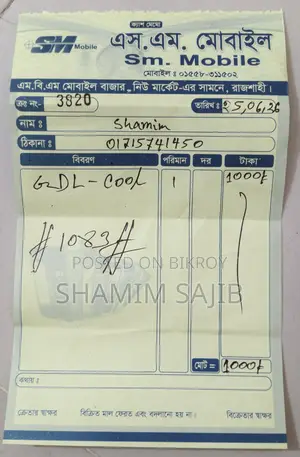 ক্যাশ মেমো
SM Mobile
এস.এম. মোবাইল
Sm. Mobile
মোবাইল : ০১৫৫৮-৩১১৫০২
এম.বি.এম মোবাইল বাজার, নিউ মার্কেট-এর সামনে, রাজশাহী।
ক্রঃ নং- 3820 তারিখ : 25/06/26
নাম : Shamim
ঠিকানা : 01715741450
বিবরণ পরিমান দর টাকা
GDL-COOL 1 1000/
#1083#
POSTED ON BIKROY
SHAMIM SAJIB
মোট = 1000/
কথায় :
ক্রেতার স্বাক্ষর বিক্রিত মাল ফেরত এবং বদলানো হয় না। বিক্রেতার স্বাক্ষর